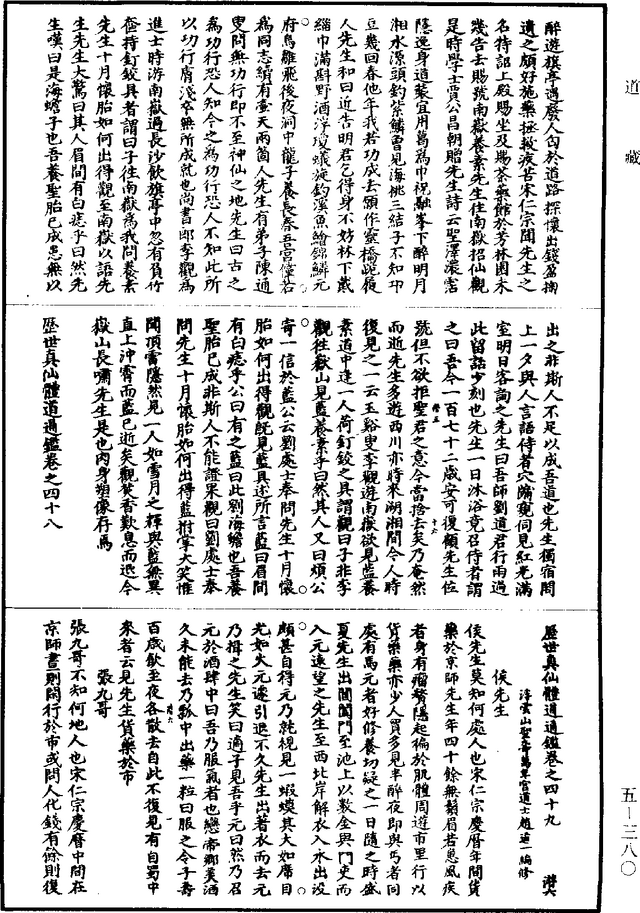 道藏
醉遊旗亭遇廢人匄於道路探懷出錢盈掬
遺之頗好施藥拯救疾苦宋仁宗聞先生之
名待詔上殿賜坐及賜茶藥館於芳林園未
幾告去賜號南嶽養素先生住南嶽招仙觀
是時學士賈公昌朝贈先生詩云聖澤濃霑
隱逸身道裝宜用葛為巾祝融峯下醉明月
湘水源頭釣紫鱗曾見海桃三結子不知卭
豆幾回春他年我若功成去願作靈橋跪履
人先生和曰近告明君乞得身不妨林下戴
緇巾滿斟野酒浮埃蟻旋釣溪魚繪錦鱗元
府鳥雛飛後夜洞中龍子養長春吾宮嬪若
為同志續有壺天兩箇人先生有弟子陳通
叟問無功行即不至神仙之地先生曰古之
為功行恐人知今之為功行恐人不知此所
以功行膚淺卒無所成就也尚書郎李觀為
進士時游南嶽過長沙飲旗亭中忽有負竹
奩持釘鉸具者謂曰子往南嶽為我問養素
先生十月懷胎如何出得觀至南嶽以語先
生先生大驚曰其人眉間有白痣乎曰然先
生嘆曰是海蟾子也吾養聖胎已成患無以
出之非斯人不足以成吾道也先生獨宿閤
上一夕與人言語侍者穴牖窺伺見紅光滿
室明日客詢之先生曰吾師劉道君行雨過
此留話少刻也先生一日沐浴竟召侍者謂
之曰吾今一百七十二歲安可復顧先生位
號但不欲拒聖君之意今當捨去矣乃奄然
而逝先生多遊西川亦時來湖湘間今人時
復見之一云玉谿叟李觀遊南嶽欲見藍養
素道中逢一人荷釘鉸之具謂觀曰子非李
觀往嶽山見藍養素乎曰然其人又曰煩公
寄一信於藍公云劉處士奉問先生十月懷
胎如何出得觀旣見藍具述所言藍曰眉間
有白痣乎公曰有之藍曰此劉海蟾也吾養
聖胎已成非斯人不能證果觀曰劉處士奉
問先生十月懷胎如何出得藍拊掌大笑惟
聞頂雷隱然見一人如雪月之輝與藍無異
直上沖霄而藍已逝矣觀焚香歎息而退今
嶽山長嘯先生是也肉身塑像存焉
歷世真仙體道通鑑卷之四十八
歷世真仙體道通鑑卷之四十九
浮雲山聖壽萬年宮道士趙道一編修
侯先生
侯先生莫知何處人也宋仁宗慶曆年間貨
藥於京師先生年四十餘無鬚眉若患風疾
者身有瘤贅隱起徧於肌體周遊市里行以
貨藥藥亦少人買多見半醉夜即與丐者同
處有馬元者好修養切疑之一日隨之時盛
夏先生出閶闔門至池上以數金與門吏而
入元遠望之先生至西北岸解衣入水出沒
頗甚自得元乃就視見一蝦蟆其大如席目
光如火元遽引退不久先生出著衣而去元
乃揖之先生笑曰適子見吾乎元曰然乃召
元於酒肆中曰吾乃服氣者也戀帝鄉美酒
久未能去乃瓢中出藥一粒曰服之令子壽
百歲飲至夜各散去自此不復見有自蜀中
來者云見先生貨藥於市
張九哥
張九哥不知何地人也宋仁宗慶曆中間在
京師晝則閑行於市或問人化錢有餘則復
五－三八〇